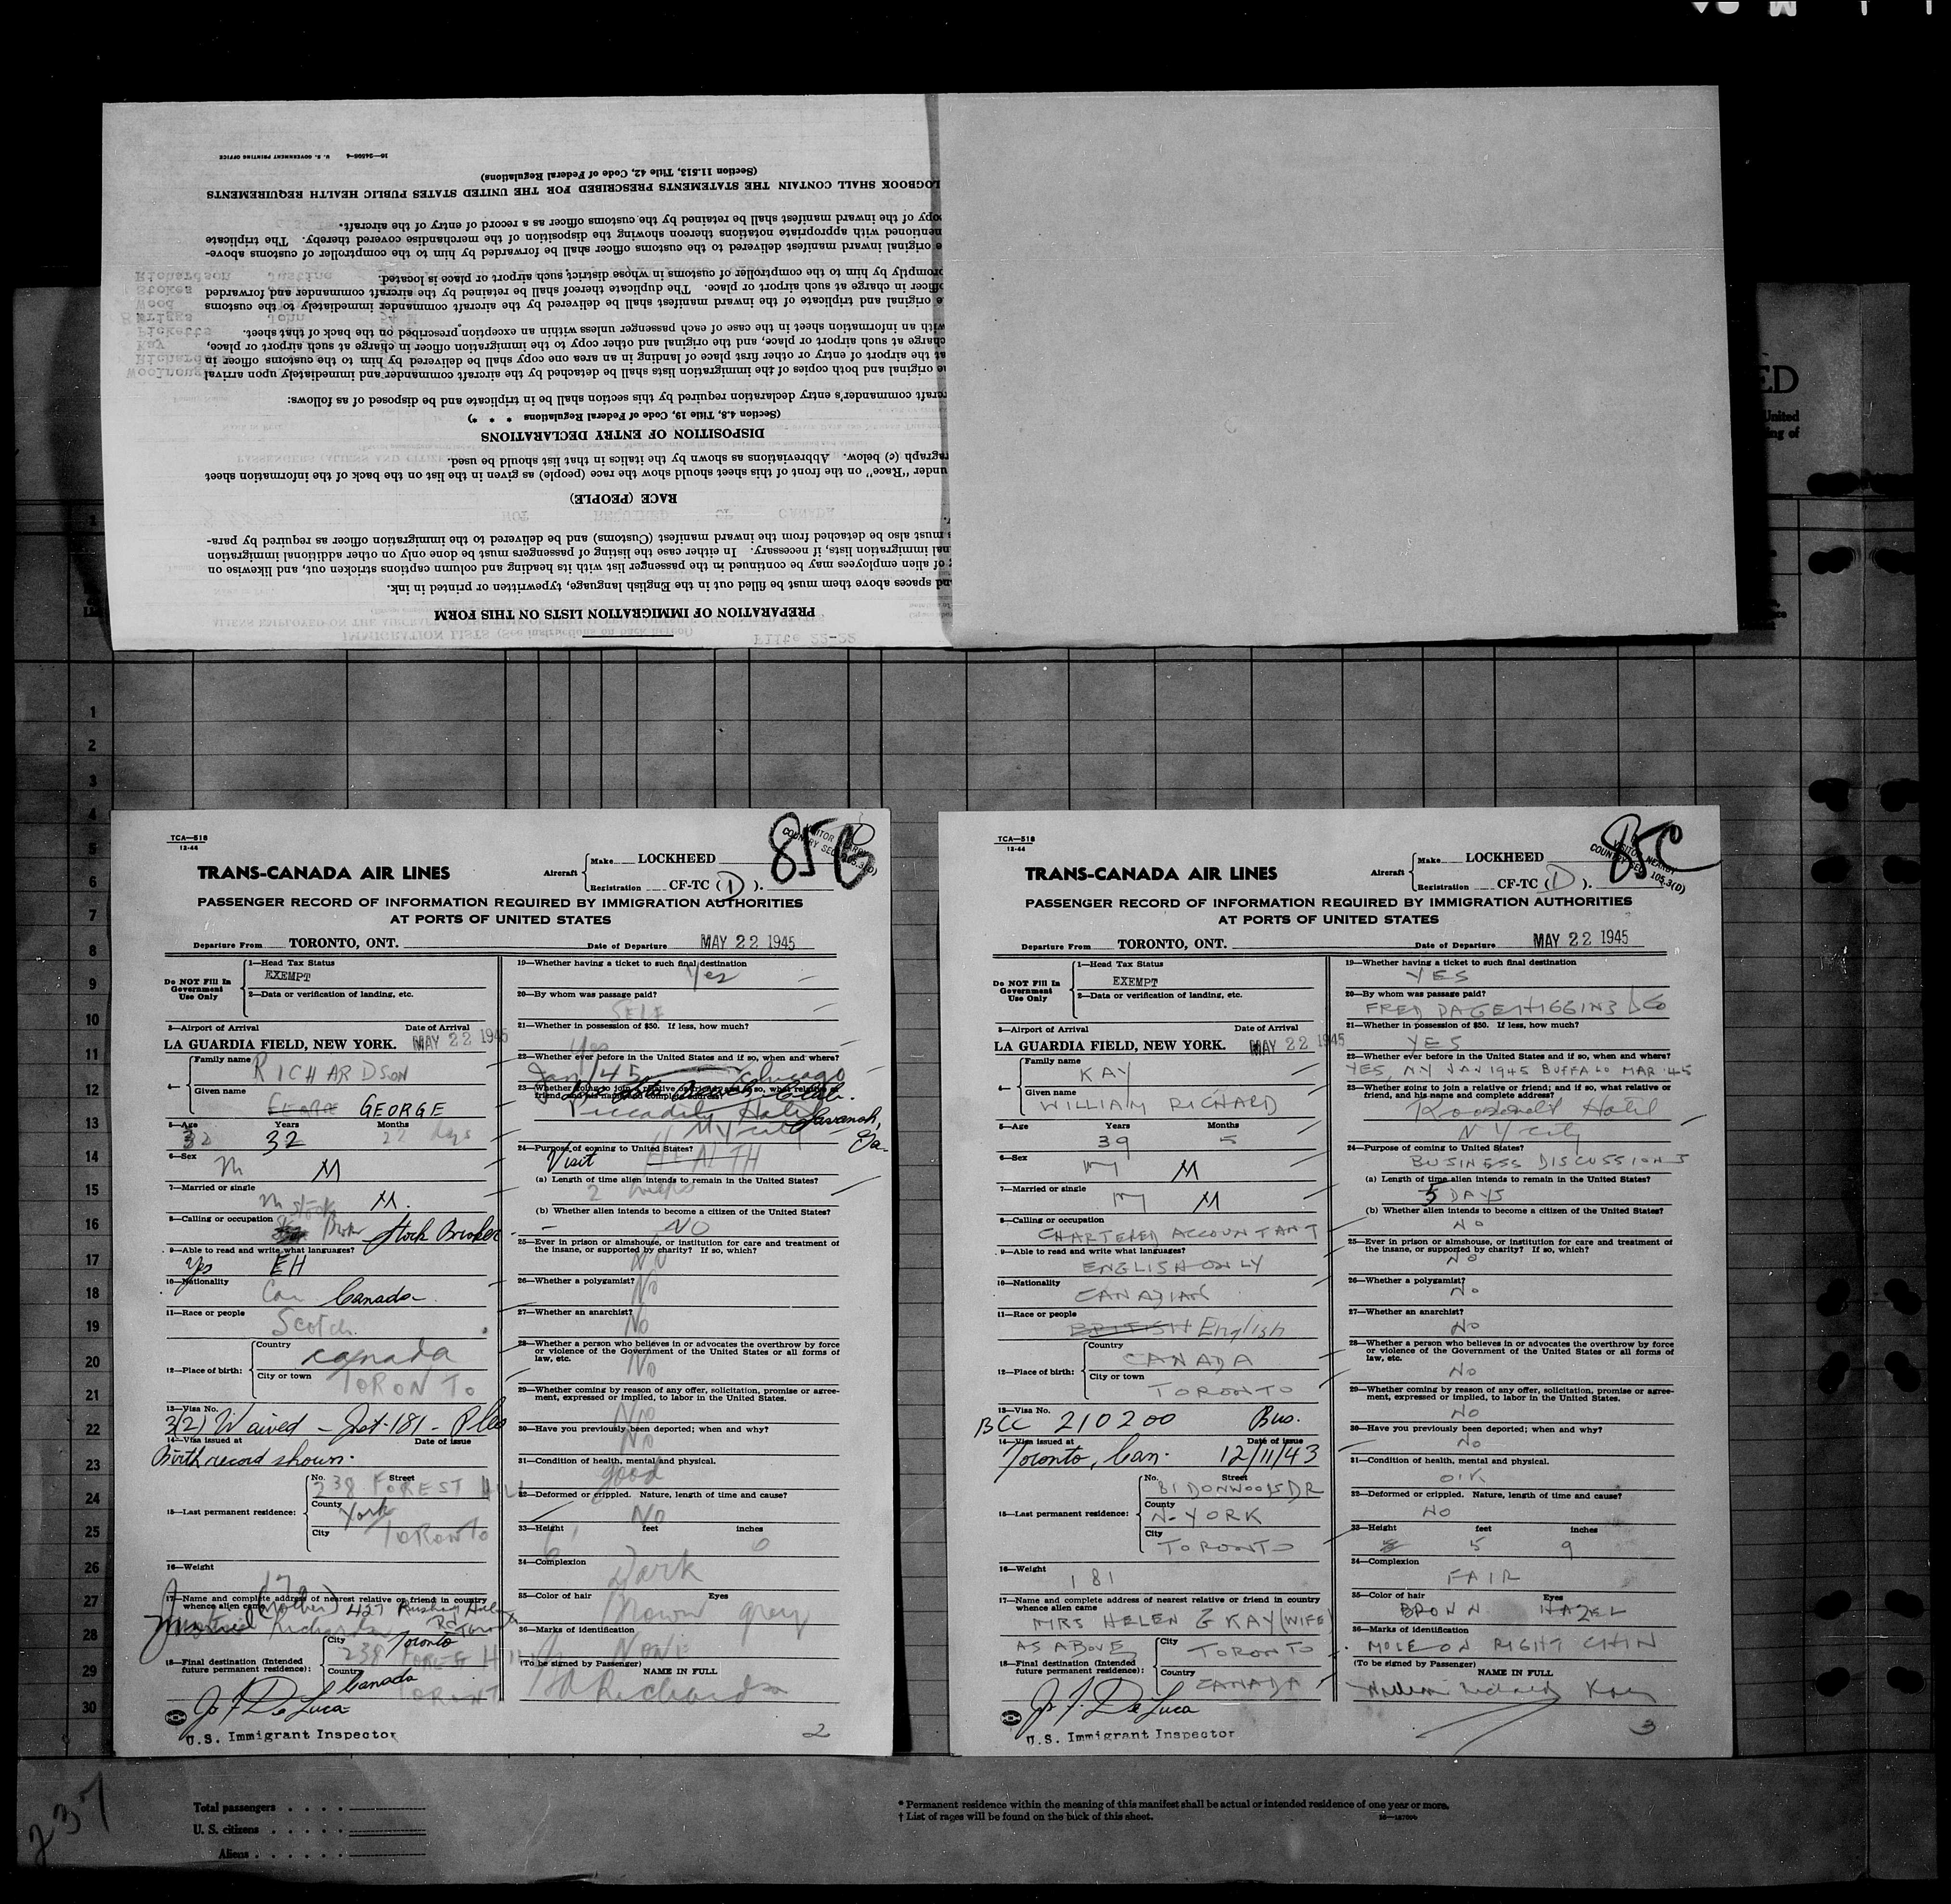 16—34508-4 U. S. GOVERNMENT PRINTING OFFICE
(Section 11.513, Title 42, Code of Federal Regulations)
LOGBOOK SHALL CONTAIN THE STATEMENTS PRESCRIBED FOR THE UNITED STATES PUBLIC HEALTH REQUIREMENTS
copy of the inward manifest shall be retained by the customs officer as a record of entry of the aircraft.
mentioned with appropriate notations thereon showing the disposition of the merchandise covered thereby. The triplicate
original inward manifest delivered to the customs officer shall be forwarded by him to the comptroller of customs above-
promptly by him to the comptroller of customs in whose district such airport or place is located.
officer in charge at such airport or place. The duplicate thereof shall be retained by the aircraft commander and forwarded
original and triplicate of the inward manifest shall be delivered by the aircraft commander immediately to the customs
with an information sheet in the case of each passenger unless within an exception prescribed on the back of that sheet.
charge at such airport or place, and the original and other copy to the immigration officer in charge at such airport or place,
at the airport of entry or other first place of landing in an area one copy shall be delivered by him to the customs officer in
original and both copies of the immigration lists shall be detached by the aircraft commander and immediately upon arrival
commander's entry declaration required by this section shall be in triplicate and be disposed of as follows:
(Section 4.8, Title 19, Code of Federal Regulations * * *)
DISPOSITION OF ENTRY DECLARATIONS
(c) below. Abbreviations as shown by the italics in that list should be used.
under "Race" on the front of this sheet should show the race (people) as given in the list on the back of the information sheet
RACE (PEOPLE)
must also be detached from the inward manifest (Customs) and be delivered to the immigration officer as required by para-
immigration lists, if necessary. In either case the listing of passengers must be done only on other additional immigration
of alien employees may be continued in the passenger list with its heading and column captions stricken out, and likewise on
and spaces above them must be filled out in the English language, typewritten or printed in ink.
PREPARATION OF IMMIGRATION LISTS ON THIS FORM
1
2
3
4
5
6
7
8
9
10
11
12
13
14
15
16
17
18
19
20
21
22
23
24
25
26
27
28
29
30
TCA—518
12-44
85B
TRANS-CANADA AIR LINES
Aircraft
Make LOCKHEED
Registration CF-TC ( D ).
PASSENGER RECORD OF INFORMATION REQUIRED BY IMMIGRATION AUTHORITIES
AT PORTS OF UNITED STATES
Departure From TORONTO, ONT. Date of Departure MAY 22 1945
Do NOT Fill In Government Use Only
1—Head Tax Status
EXEMPT
2—Data or verification of landing, etc.
3—Airport of Arrival Date of Arrival
LA GUARDIA FIELD, NEW YORK. MAY 22 1945
4— Family name RICHARDSON
Given name GEORGE
5—Age Years Months
32 32 22 days
6—Sex
M M
7—Married or single
M M.
8—Calling or occupation
Stock Broker
9—Able to read and write what languages?
Yes EH
10—Nationality
Can Canada
11—Race or people
Scotch
12—Place of birth:
Country Canada
City or town TORONTO
13—Visa No.
3(2) Waived - Jst-181 -
14—Visa issued at Date of issue
Birth record shown.
15—Last permanent residence:
No. Street
238 FOREST HILL
County York
City TORONTO
16—Weight
17—Name and complete address of nearest relative or friend in country
whence alien came
Richardson (Mother) 427
Toronto
18—Final destination (Intended
future permanent residence):
City Toronto
238 FOREST HILL
Country Canada
TORONT
Jos. J. De Luca
U.S. Immigrant Inspector
19—Whether having a ticket to such final destination
Yes
20—By whom was passage paid?
SELF
21—Whether in possession of $50. If less, how much?
Yes
22—Whether ever before in the United States and if so, when and where?
Jan/45 Chicago
23—Whether going to join a relative or friend; and if so, what relative or
friend, and his name and complete address?
Piccadilly Hotel
NY city
Savanah, Ga.
24—Purpose of coming to United States?
Visit HEALTH
(a) Length of time alien intends to remain in the United States?
2 weeks
(b) Whether alien intends to become a citizen of the United States?
NO
25—Ever in prison or almshouse, or institution for care and treatment of
the insane, or supported by charity? If so, which?
No
26—Whether a polygamist?
No
27—Whether an anarchist?
No
28—Whether a person who believes in or advocates the overthrow by force
or violence of the Government of the United States or all forms of
law, etc.
No
29—Whether coming by reason of any offer, solicitation, promise or agree-
ment, expressed or implied, to labor in the United States?
No
30—Have you previously been deported; when and why?
No
31—Condition of health, mental and physical.
good
32—Deformed or crippled. Nature, length of time and cause?
No
33—Height feet inches
6 0
34—Complexion
Dark
35—Color of hair Eyes
Brown grey
36—Marks of identification
None
(To be signed by Passenger) NAME IN FULL
Richardson
2
TCA—518
12-44
85C
VISITOR NEARBY
COUNTRY SEC. 105.3(D)
TRANS-CANADA AIR LINES
Aircraft
Make LOCKHEED
Registration CF-TC ( D ).
PASSENGER RECORD OF INFORMATION REQUIRED BY IMMIGRATION AUTHORITIES
AT PORTS OF UNITED STATES
Departure From TORONTO, ONT. Date of Departure MAY 22 1945
Do NOT Fill In Government Use Only
1—Head Tax Status
EXEMPT
2—Data or verification of landing, etc.
3—Airport of Arrival Date of Arrival
LA GUARDIA FIELD, NEW YORK. MAY 22 1945
4— Family name KAY
Given name WILLIAM RICHARD
5—Age Years Months
39 5
6—Sex
M M
7—Married or single
M M
8—Calling or occupation
CHARTERED ACCOUNTANT
9—Able to read and write what languages?
ENGLISH ONLY
10—Nationality
CANADIAN
11—Race or people
BRITISH English
12—Place of birth:
Country CANADA
City or town TORONTO
13—Visa No.
BCC 210200 Bus.
14—Visa issued at Date of issue
Toronto, Can. 12/11/43
15—Last permanent residence:
No. Street
81 DONWOODS DR
County N-YORK
City TORONTO
16—Weight
181
17—Name and complete address of nearest relative or friend in country
whence alien came
MRS HELEN G KAY (WIFE)
AS ABOVE
18—Final destination (Intended
future permanent residence):
City TORONTO
Country CANADA
Jos. J. De Luca
U.S. Immigrant Inspector
19—Whether having a ticket to such final destination
YES
20—By whom was passage paid?
FRED PAGE HIGGINS & CO
21—Whether in possession of $50. If less, how much?
YES
22—Whether ever before in the United States and if so, when and where?
YES, NY JAN 1945 BUFFALO MAR '45
23—Whether going to join a relative or friend; and if so, what relative or
friend, and his name and complete address?
Roosevelt Hotel
NY city
24—Purpose of coming to United States?
BUSINESS DISCUSSIONS
(a) Length of time alien intends to remain in the United States?
5 DAYS
(b) Whether alien intends to become a citizen of the United States?
NO
25—Ever in prison or almshouse, or institution for care and treatment of
the insane, or supported by charity? If so, which?
NO
26—Whether a polygamist?
No
27—Whether an anarchist?
NO
28—Whether a person who believes in or advocates the overthrow by force
or violence of the Government of the United States or all forms of
law, etc.
NO
29—Whether coming by reason of any offer, solicitation, promise or agree-
ment, expressed or implied, to labor in the United States?
NO
30—Have you previously been deported; when and why?
No
31—Condition of health, mental and physical.
O.K
32—Deformed or crippled. Nature, length of time and cause?
NO
33—Height feet inches
5 9
34—Complexion
FAIR
35—Color of hair Eyes
BROWN HAZEL
36—Marks of identification
MOLE ON RIGHT CHIN
(To be signed by Passenger) NAME IN FULL
William Richard Kay
3
237
Total passengers
U. S. citizens
Aliens
* Permanent residence within the meaning of this manifest shall be actual or intended residence of one year or more.
† List of races will be found on the back of this sheet.